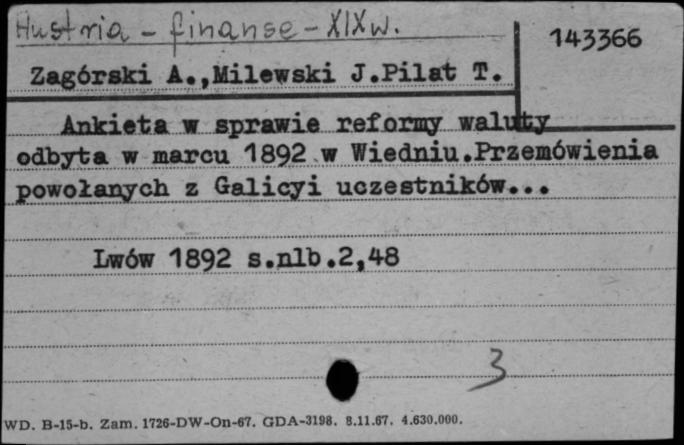 Austria - finanse - XIXw.
143366
Zagórski A.,Milewski J.Pilat T.
Ankieta w sprawie reformy waluty
odbyta w marcu 1892 w Wiedniu.Przemówienia
powołanych z Galicyi uczestników...
Lwów 1892 s.nlb.2,48
3
WD. B-15-b. Zam. 1726-DW-On-67. GDA-3198. 8.11.67. 4.630.000.